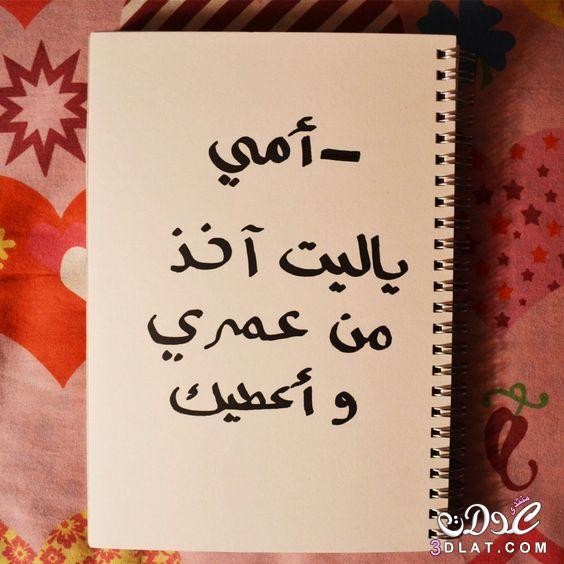 - أمي
ياليت آخذ
من عمري
و أعطيك
منتدى
عدلات
3DLAT.COM